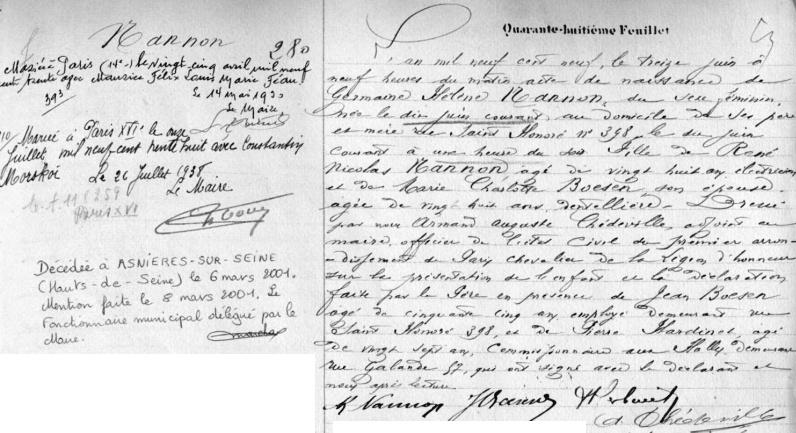 Nannon
280
Mariée à Paris (14e) le vingt cinq avril mil neuf
cent trente avec Maurice Félix Louis Marie Jean
393
Le 14 mai 1930
Le Maire
Mariée à Paris XVIe le onze
Juillet mil neuf cent trente huit avec Constantin
Morskoï Le 26 Juillet 1938
Le Maire
Paris XVI
Décédée à ASNIERES-SUR-SEINE
(Hauts-de-Seine) le 6 mars 2001.
Mention faite le 8 mars 2001. Le
Fonctionnaire municipal délégué par le
Maire.
Quarante-huitième Feuillet
L'an mil neuf cent neuf, le treize juin à
neuf heures du matin acte de naissance de
Germaine Hélène Nannon, du sexe féminin,
née le dix juin courant au domicile de ses père
et mère rue Saint Honoré n° 398, le dix juin
courant à une heure du soir fille de René
Nicolas Nannon agé de vingt huit an électricien
et de Marie Charlotte Boesen, son épouse
agée de vingt huit ans dentellière. Dressé
par nous Armand Auguste Chédeville, adjoint au
maire, officier de l'état Civil du premier arron-
dissement de Paris chevalier de la Légion d'honneur
sur la présentation de l'enfant et la déclaration
faite par le Père en présence de Jean Boesen
agé de cinquante cinq an employé demeurant rue
Saint Honoré 398, et de Pierre Hardinet agé
de vingt sept an, Commissionnaire aux Halles demeurant
rue Galande 57, qui ont signé avec le déclarant et
nous après lecture
R Nannon
A. Chédeville